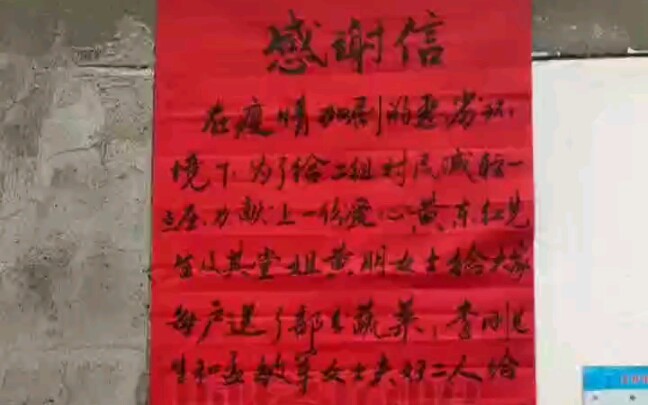 感谢信
在疫情加剧的恶劣环
境下,为了给二组村民减轻一
点压力献上一份爱心,黄东红先
生及其堂姐黄明女士给大家
每户送了部分蔬菜,李刚先
生和孟敏军女士夫妇二人给